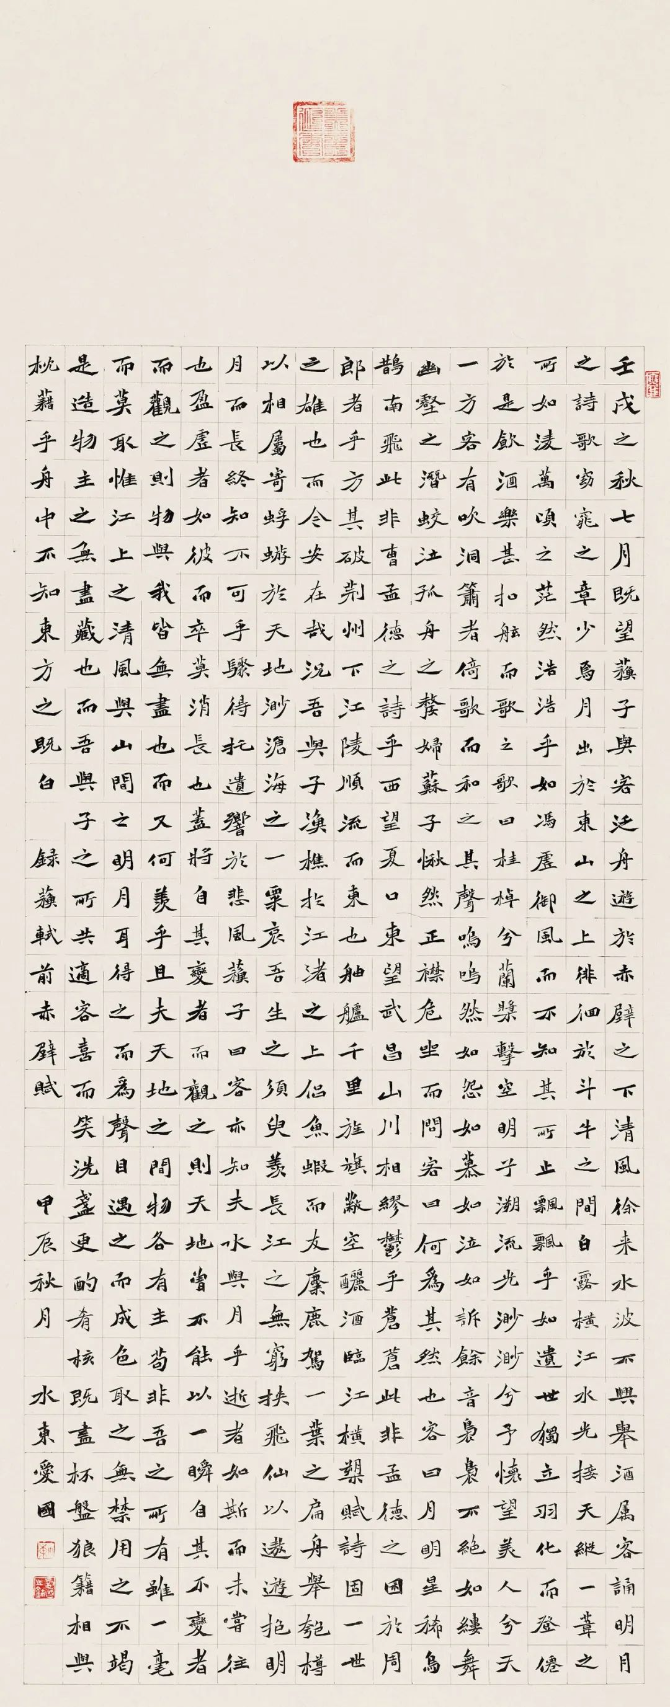 壬戌之秋七月既望蘇子與客泛舟遊於赤壁之下清風徐来水波不興舉酒属客誦明月
之詩歌窈窕之章少焉月出於東山之上徘徊於斗牛之間白露橫江水光接天縱一葦之
所如淩萬頃之茫然浩浩乎如馮虛御風而不知其所止飄飄乎如遺世獨立羽化而登僊
於是飲酒樂甚扣舷而歌之歌曰桂棹兮蘭槳擊空明兮溯流光渺渺兮予懷望美人兮天
一方客有吹洞簫者倚歌而和之其聲嗚嗚然如怨如慕如泣如訴餘音裊裊不絕如縷舞
幽壑之潛蛟泣孤舟之嫠婦蘇子愀然正襟危坐而問客曰何為其然也客曰月明星稀烏
鵲南飛此非曹孟德之詩乎西望夏口東望武昌山川相繆鬱乎蒼蒼此非孟德之困於周
郎者乎方其破荆州下江陵順流而東也舳艫千里旌旗蔽空釃酒臨江橫槊賦詩固一世
之雄也而今安在哉況吾與子漁樵於江渚之上侣魚蝦而友麋鹿駕一葉之扁舟舉匏樽
以相屬寄蜉蝣於天地渺滄海之一粟哀吾生之須臾羨長江之無窮挾飛仙以遨遊抱明
月而長終知不可乎驟得托遺響於悲風蘇子曰客亦知夫水與月乎逝者如斯而未嘗往
也盈虛者如彼而卒莫消長也蓋將自其變者而觀之則天地曾不能以一瞬自其不變者
而觀之則物與我皆無盡也而又何羨乎且夫天地之間物各有主苟非吾之所有雖一毫
而莫取惟江上之清風與山間之明月耳得之而為聲目遇之而成色取之無禁用之不竭
是造物主之無盡藏也而吾與子之所共適客喜而笑洗盞更酌肴核既盡杯盤狼籍相與
枕藉乎舟中不知東方之既白 録蘇軾前赤壁賦 甲辰秋月 水東愛國